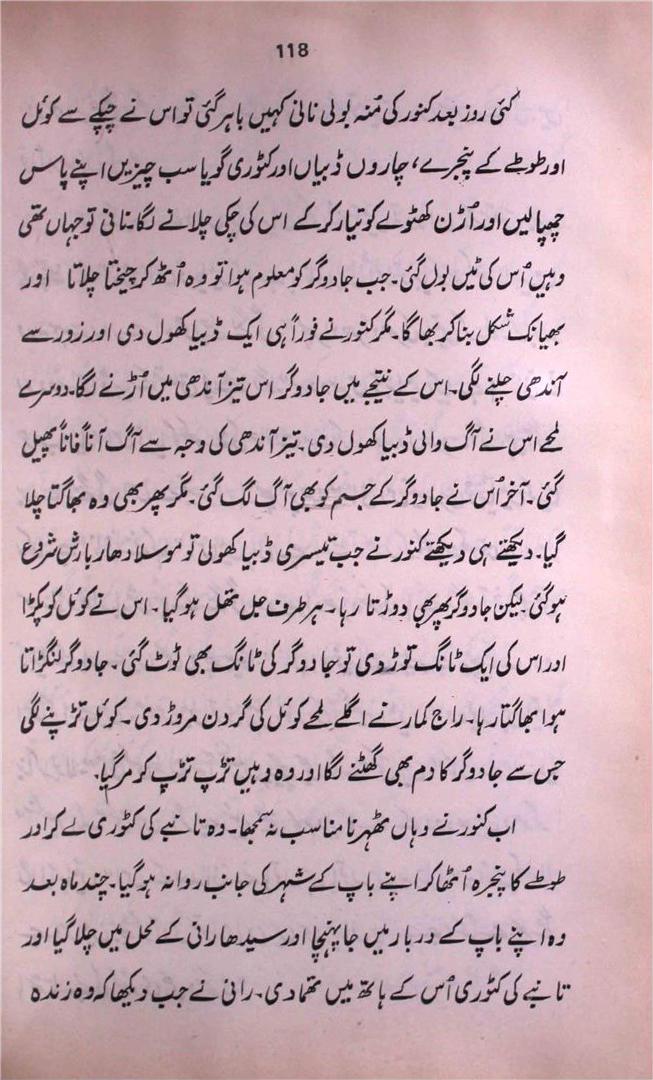 118
کئی روز بعد کنور کی مُنہ بولی نانی کہیں باہر گئی تو اس نے چپکے سے کوئل
اور طوطے کے پنجرے، چاروں ڈبیاں اور کٹوری گویا سب چیزیں اپنے پاس
چھپا لیں اور اُڑن کھٹولے کو تیار کر کے اس کی چکی چلانے لگا۔ نانی تو جہاں تھی
وہیں اُس کی ٹیں بول گئی۔ جب جادوگر کو معلوم ہوا تو وہ اُٹھ کر چیختا چلاتا اور
بھیانک شکل بنا کر بھاگا۔ مگر کنور نے فوراً ہی ایک ڈبیا کھول دی اور زور سے
آندھی چلنے لگی۔ اس کے نتیجے میں جادوگر اس تیز آندھی میں اُڑنے لگا۔ دوسرے
لمحے اس نے آگ والی ڈبیا کھول دی۔ تیز آندھی کی وجہ سے آگ آناً فاناً پھیل
گئی۔ آخر اُس نے جادوگر کے جسم کو بھی آگ لگ گئی۔ مگر پھر بھی وہ بھاگتا چلا
گیا۔ دیکھتے ہی دیکھتے کنور نے جب تیسری ڈبیا کھولی تو موسلا دھار بارش شروع
ہو گئی لیکن جادوگر پھر بھی دوڑتا رہا۔ ہر طرف جل تھل ہو گیا۔ اس نے کوئل کو پکڑا
اور اس کی ایک ٹانگ توڑ دی تو جادوگر کی ٹانگ بھی ٹوٹ گئی۔ جادوگر لنگڑاتا
ہوا بھاگتا رہا۔ راج کمار نے اگلے لمحے کوئل کی گردن مروڑ دی۔ کوئل تڑپنے لگی
جس سے جادوگر کا دم بھی گھٹنے لگا اور وہ وہیں تڑپ تڑپ کر مر گیا۔
اب کنور نے وہاں ٹھہرنا مناسب نہ سمجھا۔ وہ تانبے کی کٹوری لے کر اور
طوطے کا پنجرہ اُٹھا کر اپنے باپ کے شہر کی جانب روانہ ہو گیا۔ چند ماہ بعد
وہ اپنے باپ کے دربار میں جا پہنچا اور سیدھا رانی کے محل میں چلا گیا اور
تانبے کی کٹوری اُس کے ہاتھ میں تھما دی۔ رانی نے جب دیکھا کہ وہ زندہ